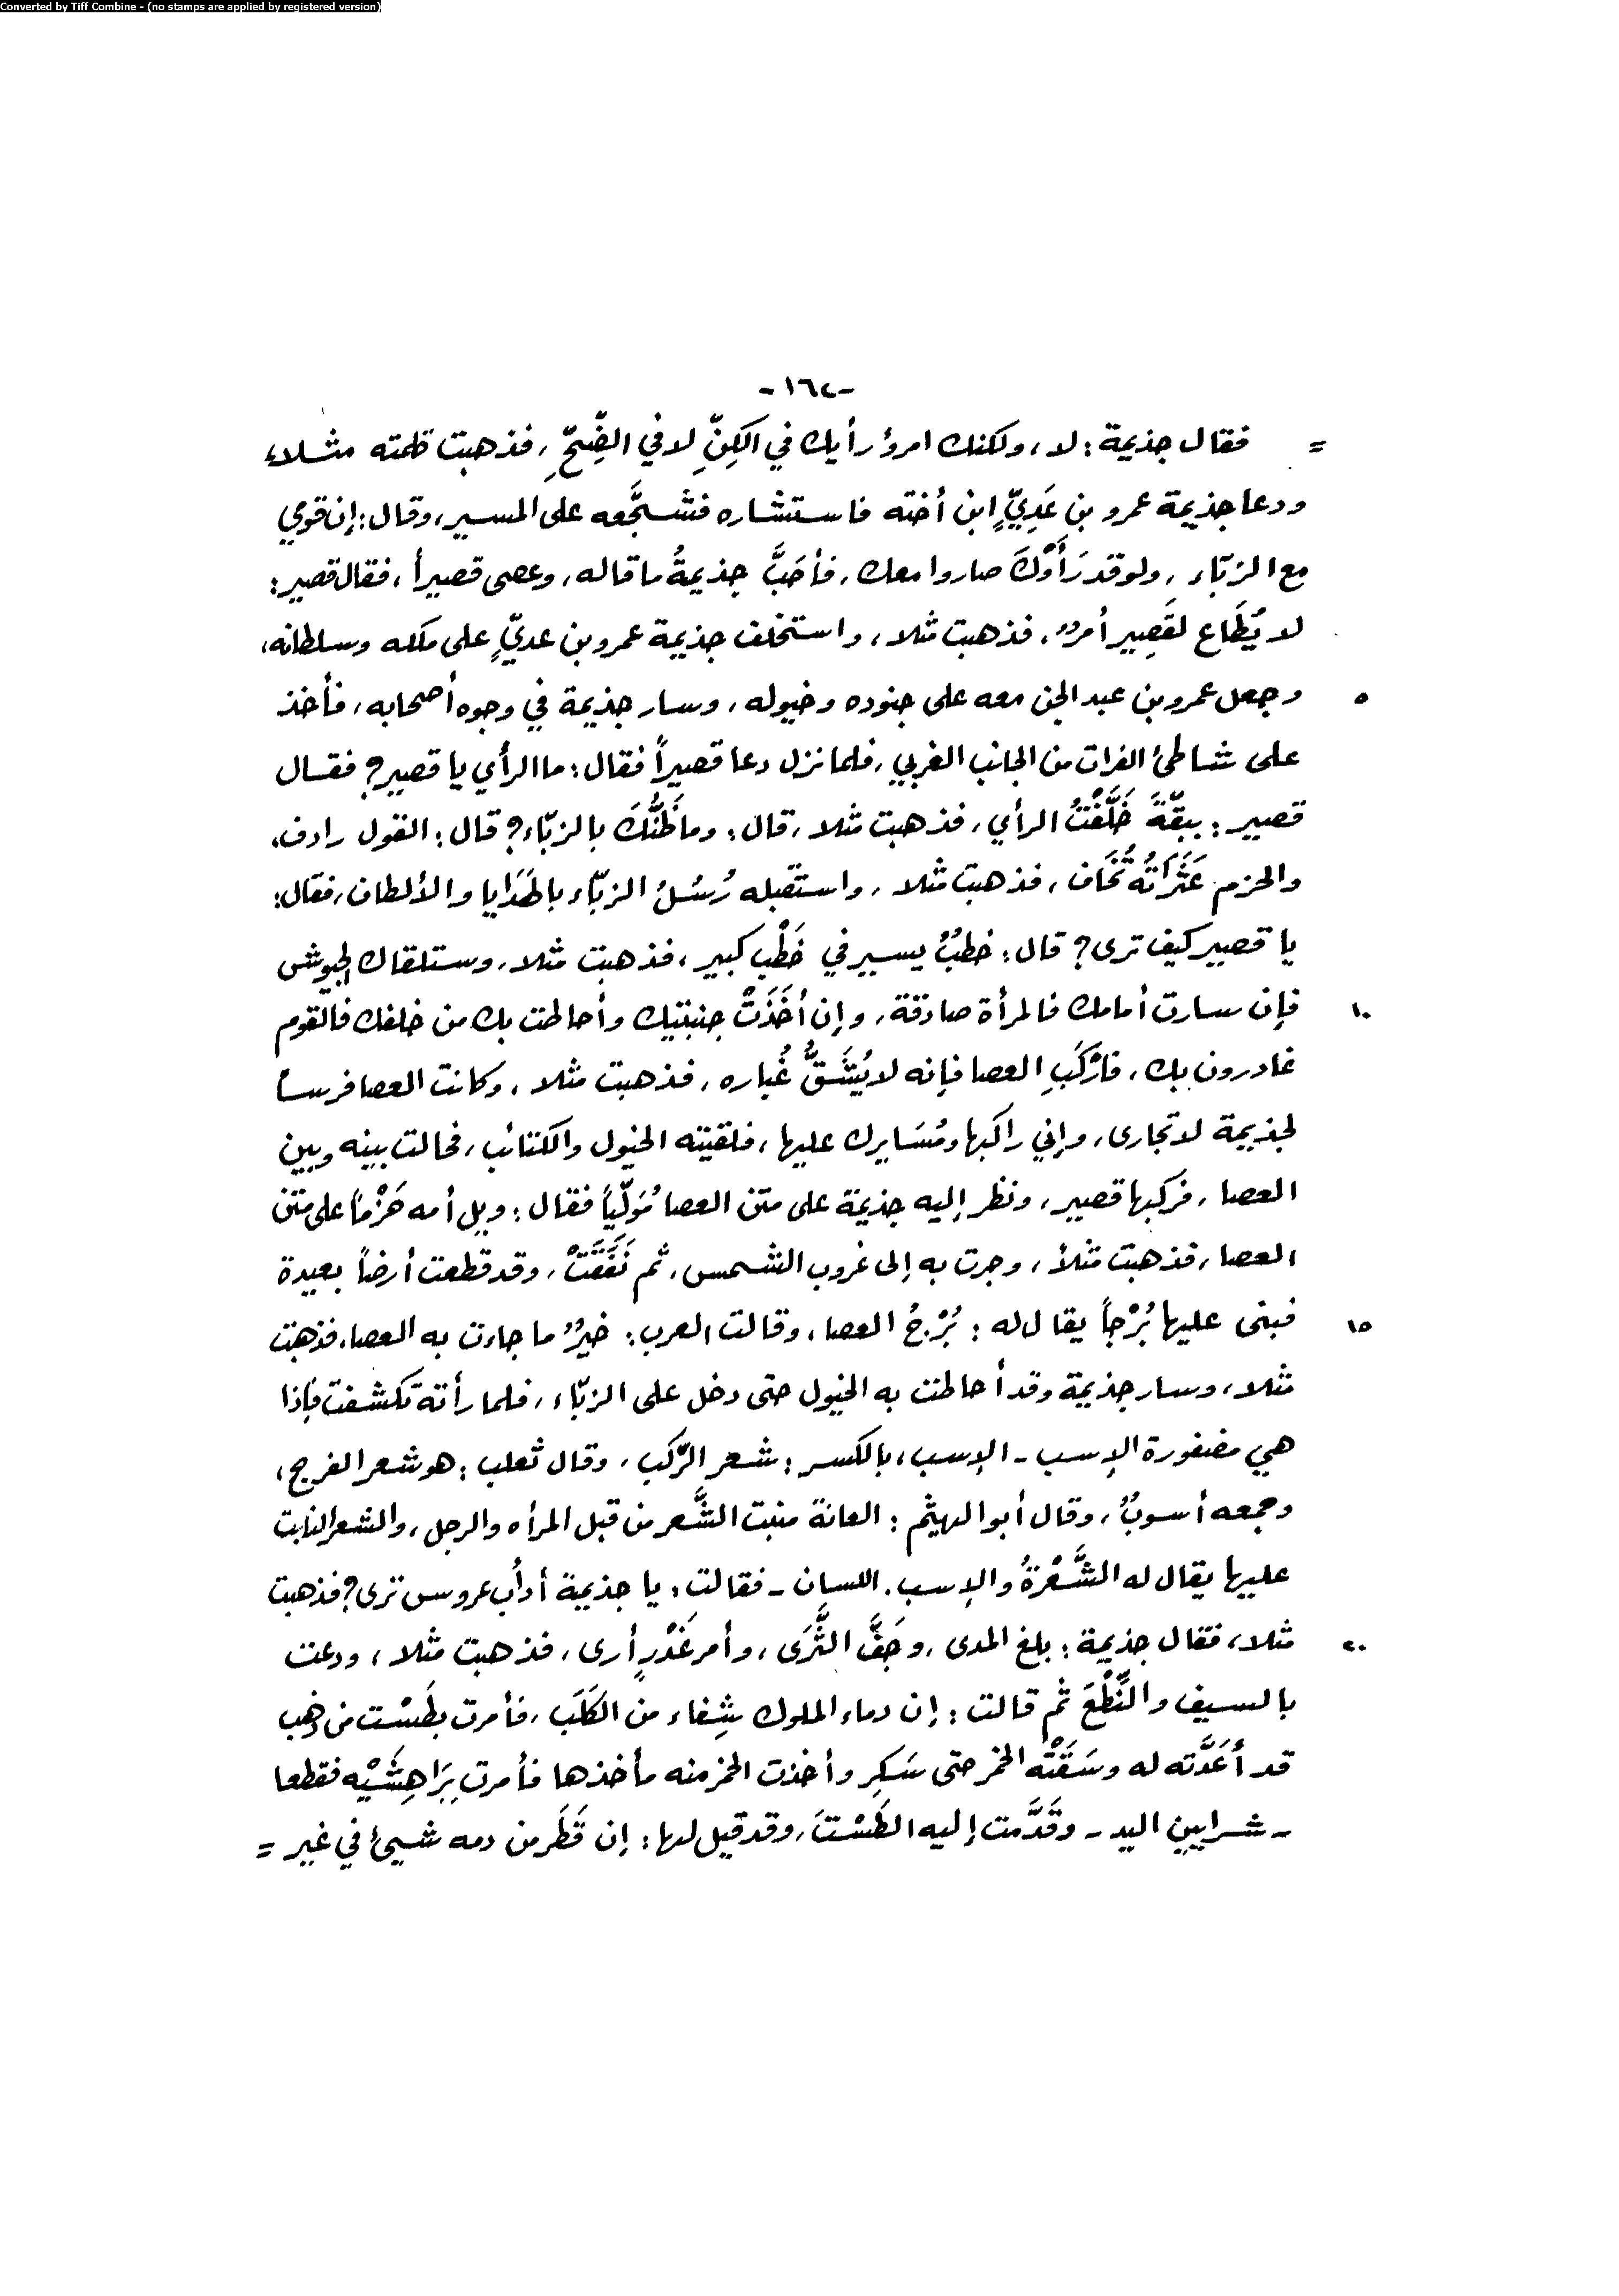 Converted by Tiff Combine - (no stamps are applied by registered version)
-١٦٤-
= فقال جذيمة : لا ، ولكنك امرؤ رأيك في الكِنِّ لا في الضِّحِّ ، فذهبت كلمته مثلاً،
ودعا جذيمة عمرو بن عَدِيٍّ ابن أخته فاستشاره فشجَّعه على المسير، وقال: إن قومي
مع الزبّاء ، ولو قد رَأَوْكَ صاروا معك ، فأحَبَّ جذيمةُ ما قاله ، وعصى قصيراً ، فقال قصير:
لا يُطَاع لقَصِير أمرٌ ، فذهبت مثلا ، واستخلف جذيمة عمرو بن عديٍّ على ملكه وسلطانه،
٥ وجعل عمرو بن عبد الجن معه على جنوده وخيوله ، وسار جذيمة في وجوه أصحابه ، فأخذ
على شاطئ الفرات من الجانب الغربي ، فلما نزل دعا قصيراً فقال : ما الرأي يا قصير؟ فقال
قصير : ببَقَّةَ خَلَّفْتُ الرأي ، فذهبت مثلا ، قال : وما ظَنُّكَ بالزبّاء؟ قال : القول رادف،
والحزم عَثَرَاتُه تُخَاف ، فذهبت مثلا ، واستقبله رُسُلُ الزبّاء بالهَدَايا والألطاف ، فقال:
يا قصير كيف ترى؟ قال : خطبٌ يسير في خَطْبٍ كبير ، فذهبت مثلا ، وستلقاك الجيوش
١٠ فإن سارت أمامك فالمرأة صادقة ، وإن أخَذَتْ جنبتيك وأحاطت بك من خلفك فالقوم
غادرون بك ، فارْكَبِ العصا فإنه لا يُشَقُّ غُباره ، فذهبت مثلا ، وكانت العصا فرسا
لجذيمة لا تجارى ، وإني راكبها ومُسَايرك عليها ، فلقيته الخيول والكتائب ، فحالت بينه وبين
العصا ، فركبها قصير ، ونظر إليه جذيمة على متن العصا مُوَلّياً فقال : ويل أمه حَزْماً على متن
العصا ، فذهبت مثلاً ، وجرت به إلى غروب الشمس ، ثم نَفَقَتْ ، وقد قطعت أرضاً بعيدة
١٥ فبنى عليها بُرْجاً يقال له : بُرْجُ العصا ، وقالت العرب : خيرٌ ما جاءت به العصا، فذهبت
مثلا ، وسار جذيمة وقد أحاطت به الخيول حتى دخل على الزبّاء ، فلما رأته تكشفت فإذا
هي مضفورة الإسب - الإسب ، بالكسر : شعر الرَّكب ، وقال ثعلب : هو شعر الفرج ،
وجمعه أسوبٌ ، وقال أبو الهيثم : العانة منبت الشَّعر من قبل المرأه والرجل ، والشعر النابت
عليها يقال له الشَّعْرَةُ والإسب . اللسان - فقالت : يا جذيمة أدأب عروس ترى؟ فذهبت
٢٠ مثلا ، فقال جذيمة : بلغ المدى ، وجَفَّ الثَّرَى ، وأمر غَدْرٍ أرى ، فذهبت مثلا ، ودعت
بالسيف والنِّطْعِ ثم قالت : إن دماء الملوك شِفاء من الكَلَب ، فأمرت بطَسْت من ذهب
قد أعَدَّته له وسَقَتْه الخمر حتى سَكِر وأخذت الخمر منه مأخذها فأمرت بِرَاهِشَيْه فقطعا
- شرايين اليد - وقَدَّمت إليه الطَسْتَ ، وقد قيل لها : إن قَطَر من دمه شيئ في غير =